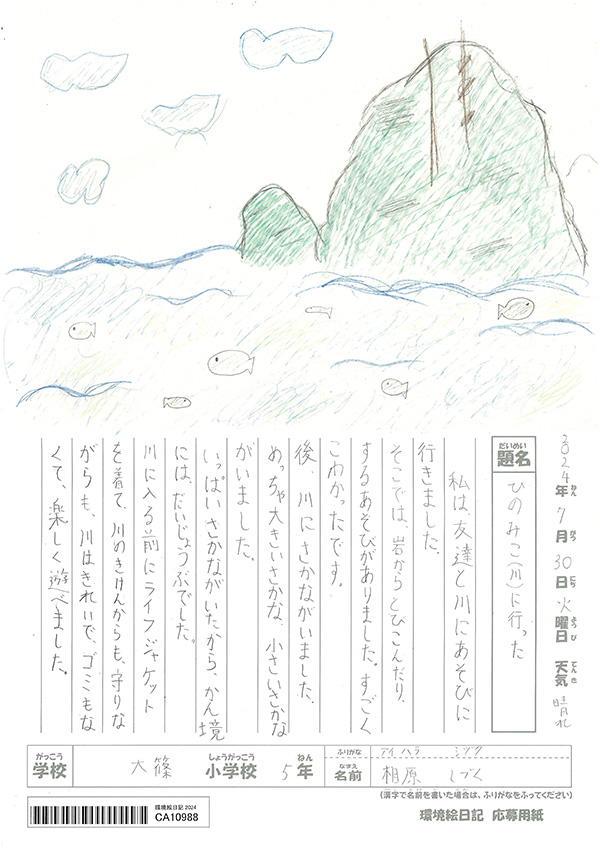 2024年ねん 7月がつ 30日にち 火曜日ようび 天気てんき 晴れ
題名だいめい ひのみこ(川)に行った
私は、友達と川にあそびに
行きました。
そこでは、岩からとびこんだり、
するあそびがありました。すごく
こわかったです。
後、川にさかながいました、
めっちゃ大きいさかな、小さいさかな
がいました。
いっぱいさかながいたから、かん境
には、だいじょうぶでした。
川に入る前にライフジャケット
を着て、川のきけんからも、守りな
がらも、川はきれいで、ゴミもな
くて、楽しく遊べました。
学校がっこう 大篠 小学校しょうがっこう 5年ねん
ふりがな アイハラ シズク
名前なまえ 相原 しづく
(漢字で名前を書いた場合は、ふりがなをふってください)
環境絵日記 2024
CA10988
環境絵日記 応募用紙